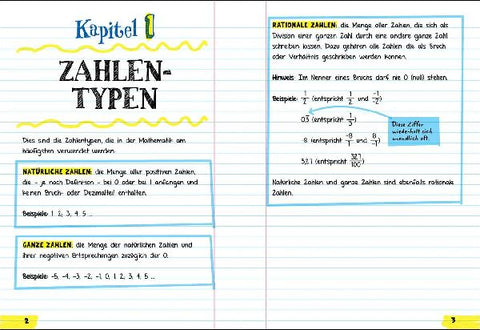 Kapitel 1
ZAHLEN-
TYPEN
Dies sind die Zahlentypen, die in der Mathematik am
häufigsten verwendet werden.
NATÜRLICHE ZAHLEN: die Menge aller positiven Zahlen,
die – je nach Definition – bei 0 oder bei 1 anfangen und
keinen Bruch- oder Dezimalteil enthalten.
Beispiele: 1, 2, 3, 4, 5 ...
GANZE ZAHLEN: die Menge der natürlichen Zahlen und
ihrer negativen Entsprechungen bezüglich der 0.
Beispiele: -5, -4, -3, -2, -1, 0, 1, 2, 3, 4, 5 ...
2
RATIONALE ZAHLEN: die Menge aller Zahlen, die sich als
Division einer ganzen Zahl durch eine andere ganze Zahl
schreiben lassen. Dazu gehören alle Zahlen, die als Bruch
oder Verhältnis geschrieben werden können.
Hinweis: Im Nenner eines Bruchs darf nie 0 (null) stehen.
Beispiele: 1/2 (entspricht 1/2 und -1/-2)
0,3 (entspricht 1/3)
Diese Ziffer
wiederholt sich
unendlich oft.
-8 (entspricht -8/1 und 8/-1)
3,27 (entspricht 327/100)
Natürliche Zahlen und ganze Zahlen sind ebenfalls rationale
Zahlen.
3